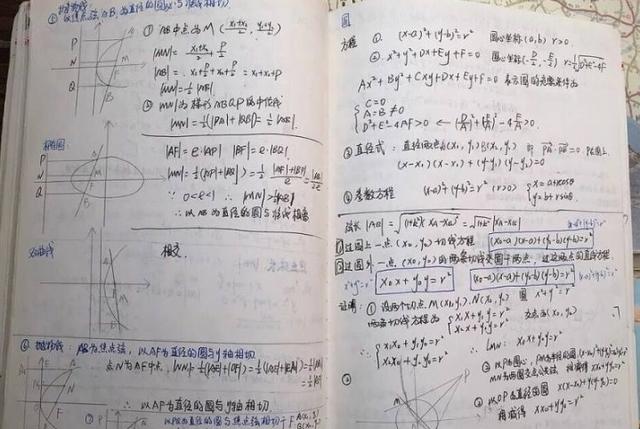 抛物线
① 以焦点弦AB为直径的圆与准线相切
① AB中点为M (x₁+x₂/2, y₁+y₂/2)
|MN| = x₁+x₂/2 + p/2
|AB| = x₁+p/2+x₂+p/2 = x₁+x₂+p
|MN| = 1/2|AB|
② MN为梯形ABQP的中位线
|MN| = 1/2(|PA|+|BQ|) = 1/2|AB|
椭圆:
|AF| = e·|AP| |BF| = e·|BQ|
|MN| = 1/2(|AP|+|BQ|) = 1/2
∵ 0<e<1 ∴ |MN|>1/2|AB|
∴ 以AB为直径的圆与准线相离
双曲线
相交
② 抛物线: AB为焦点弦, 以AF为直径的圆与y轴相切
点N为AF中点,
∴ 以AF为直径的圆与y轴相切
圆
方程 ①. (x-a)²+(y-b)²=r² 圆心坐标(a,b) r>0
②. x²+y²+Dx+Ey+F=0 圆心坐标(-D/2,-E/2) r=1/2√D²+E²-4F
Ax²+By²+Cxy+Dx+Ey+F=0 表示圆的充要条件为
C=0
A=B≠0
D²+E²-4AF>0 ← (D/A)²+(E/A)²-4F/A>0
③ 直径式: 直径两点A(x₁,y₁)B(x₂,y₂) 即 PA·PB=0
(x-x₁)(x-x₂)+(y-y₁)(y-y₂)=0
④ 参数方程 (x-a)²+(y-b)²=r² (r>0) x=a+rcosθ
y=b+rsinθ
弦长|AB|=√(1+k²)(x_A-x_B)²=√1+k²|x_A-x_B|
① 过圆上一点(x₀,y₀)切线方程 (x₀-a)(x-a)+(y₀-b)(y-b)=r²
② 过圆外一点(x₀,y₀)的两条切线交圆于两点, 过这两点的直线方程
x²+y²=r² x₀x+y₀y=r² (x₀-a)(x-a)+(y₀-b)(y-b)=r²
证明: ① 设两个切点 M(x₁,y₁) N(x₂,y₂) 圆 x²+y²=r²
两条切线方程为 x₁x+y₁y=r²
x₂x+y₂y=r²
∴ x₁x₀+y₁y₀=r²
x₂x₀+y₂y₀=r² ∴ l_MN: x₀x+y₀y=r²
②
② 以OP为直径的圆 x(x-x₀)+y(y-y₀)=0
相减得 xx₀+yy₀=r²